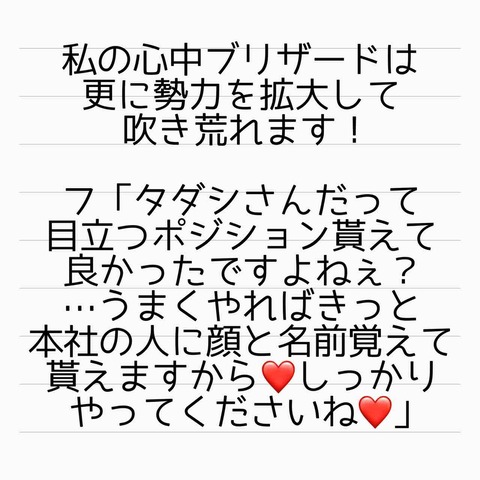 私の心中ブリザードは
更に勢力を拡大して
吹き荒れます！
フ「タダシさんだって
目立つポジション貰えて
良かったですよねぇ？
…うまくやればきっと
本社の人に顔と名前覚えて
貰えますから❤️しっかり
やってくださいね❤️」